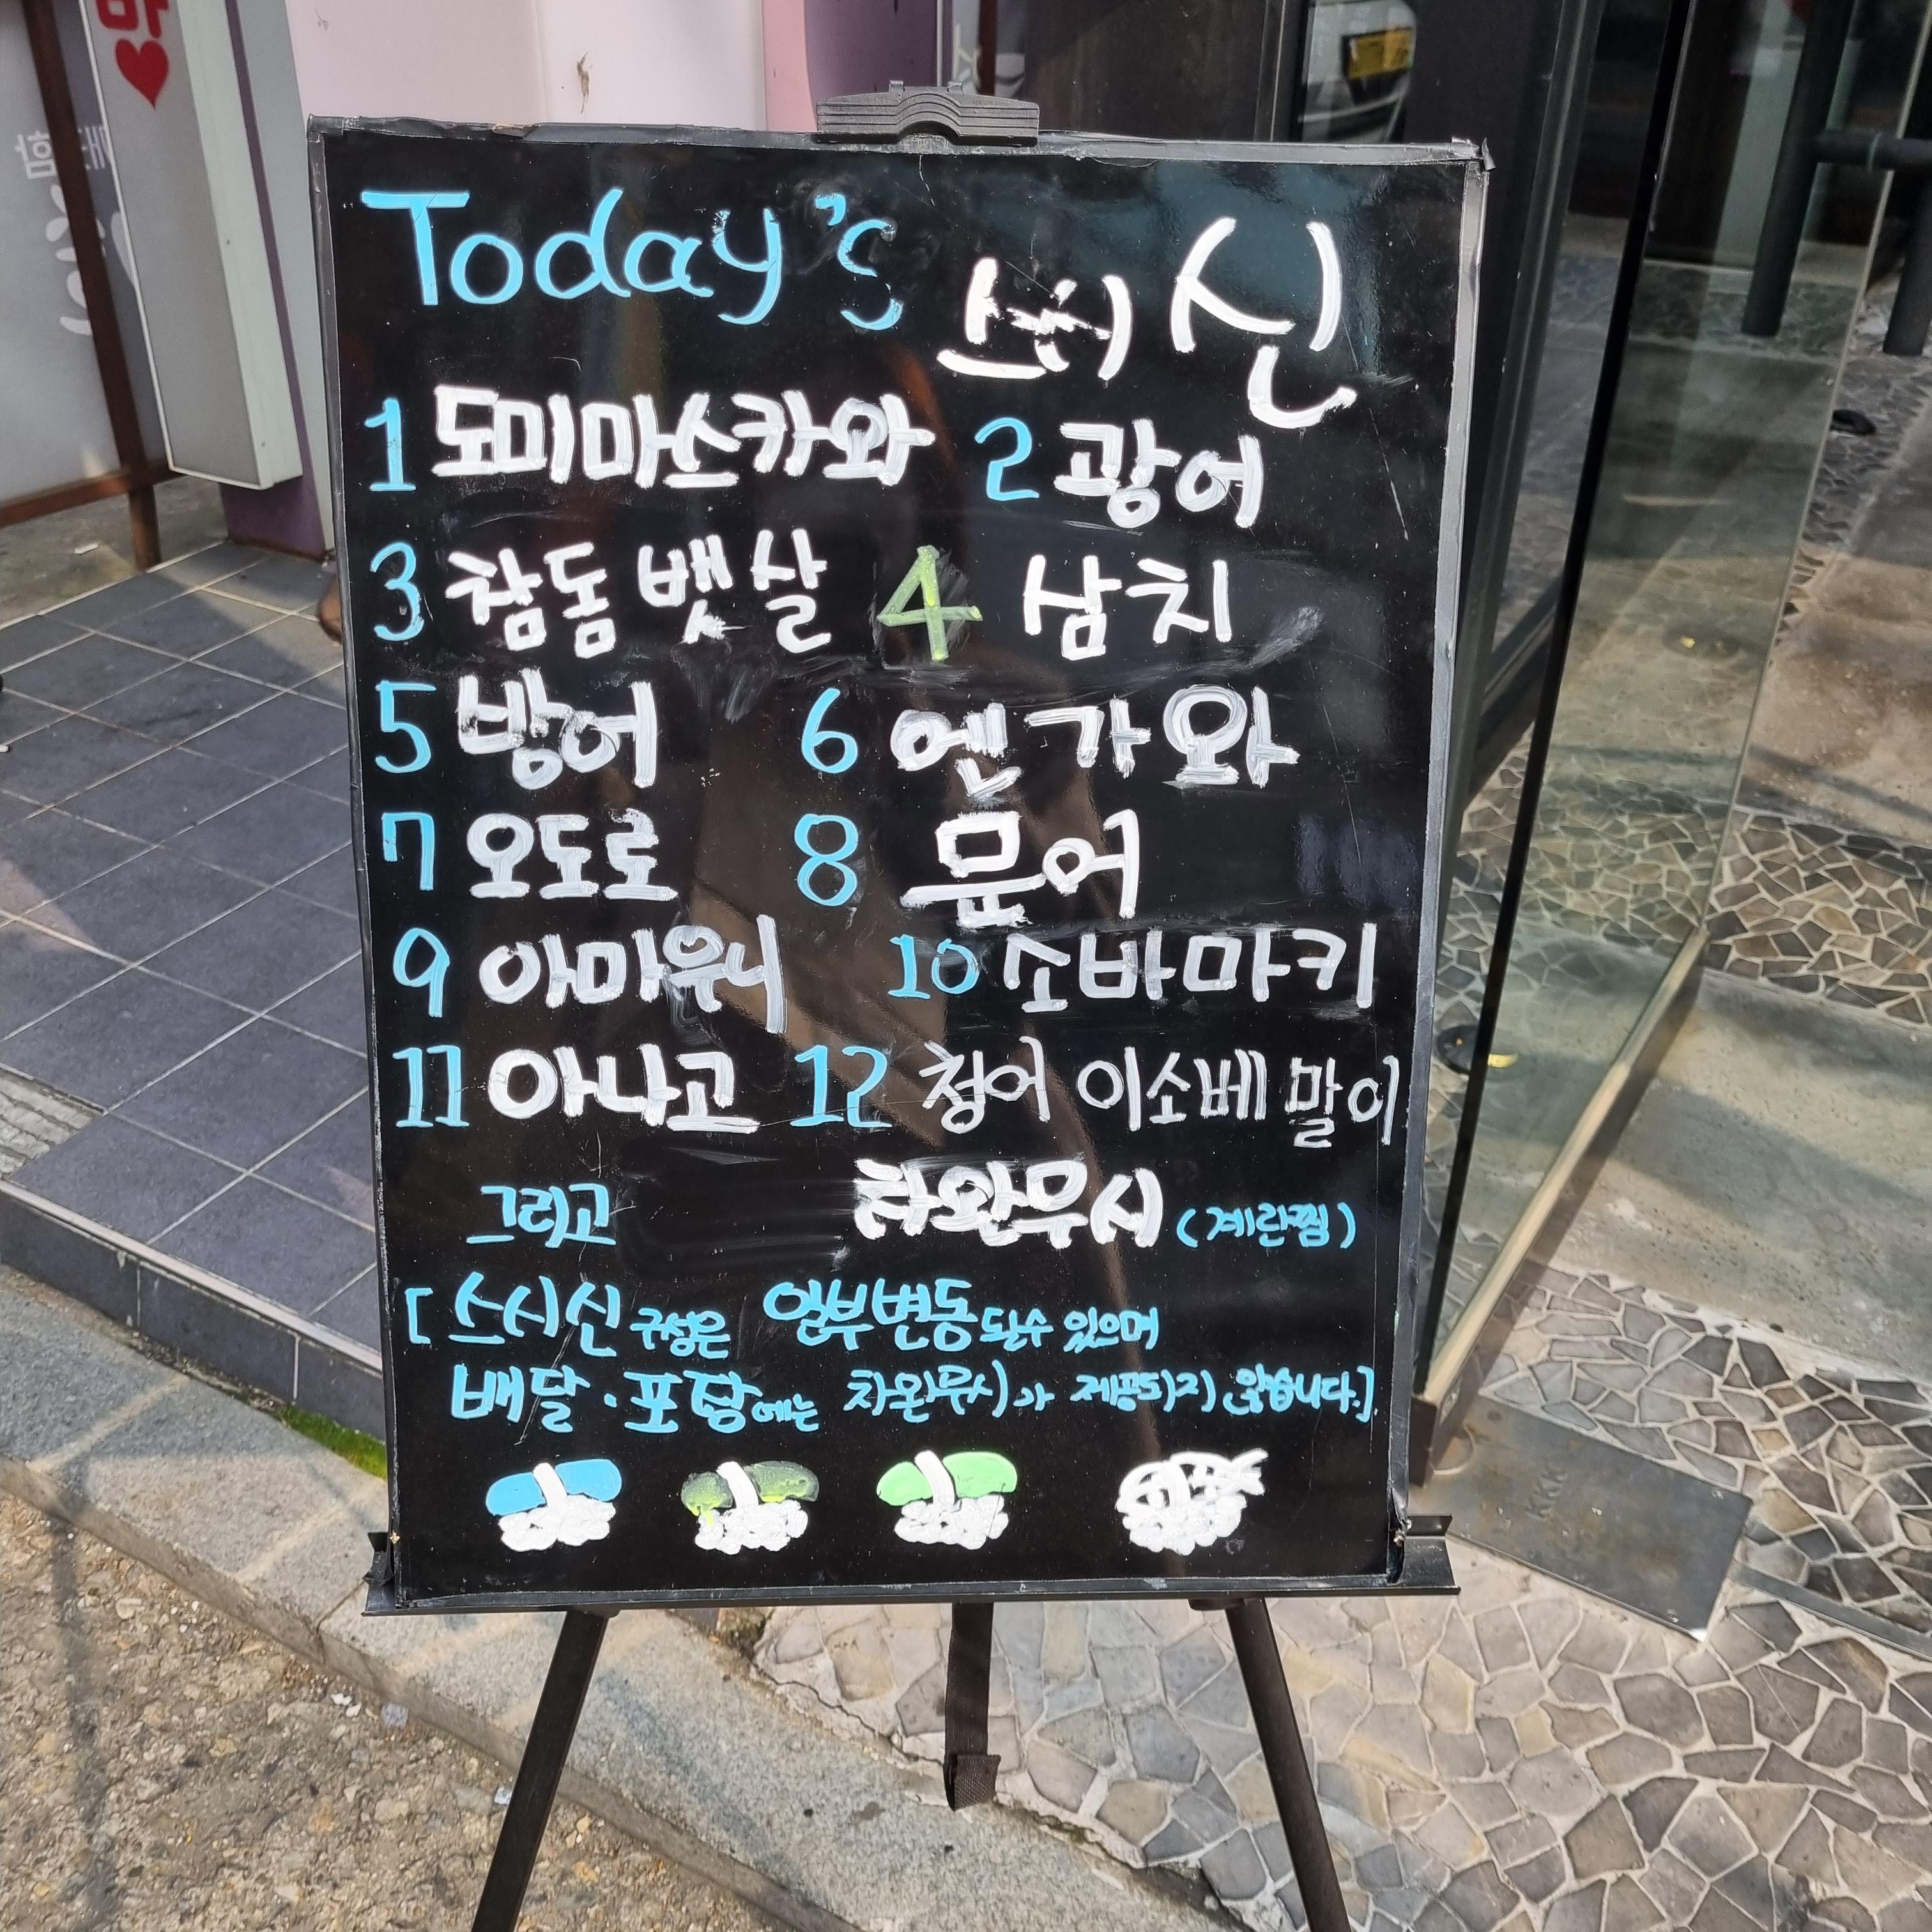 Today's 스시 신
1 도미마스카와 2 광어
3 참돔 뱃살 4 삼치
5 방어 6 엔가와
7 오도로 8 문어
9 아마우니 10 소바마키
11 아나고 12 청어 이소베 말이
그리고 차완무시 (계란찜)
[ 스시신 구성은 일부변동 될수 있으며
배달·포장에는 차완무시가 제공되지 않습니다.]